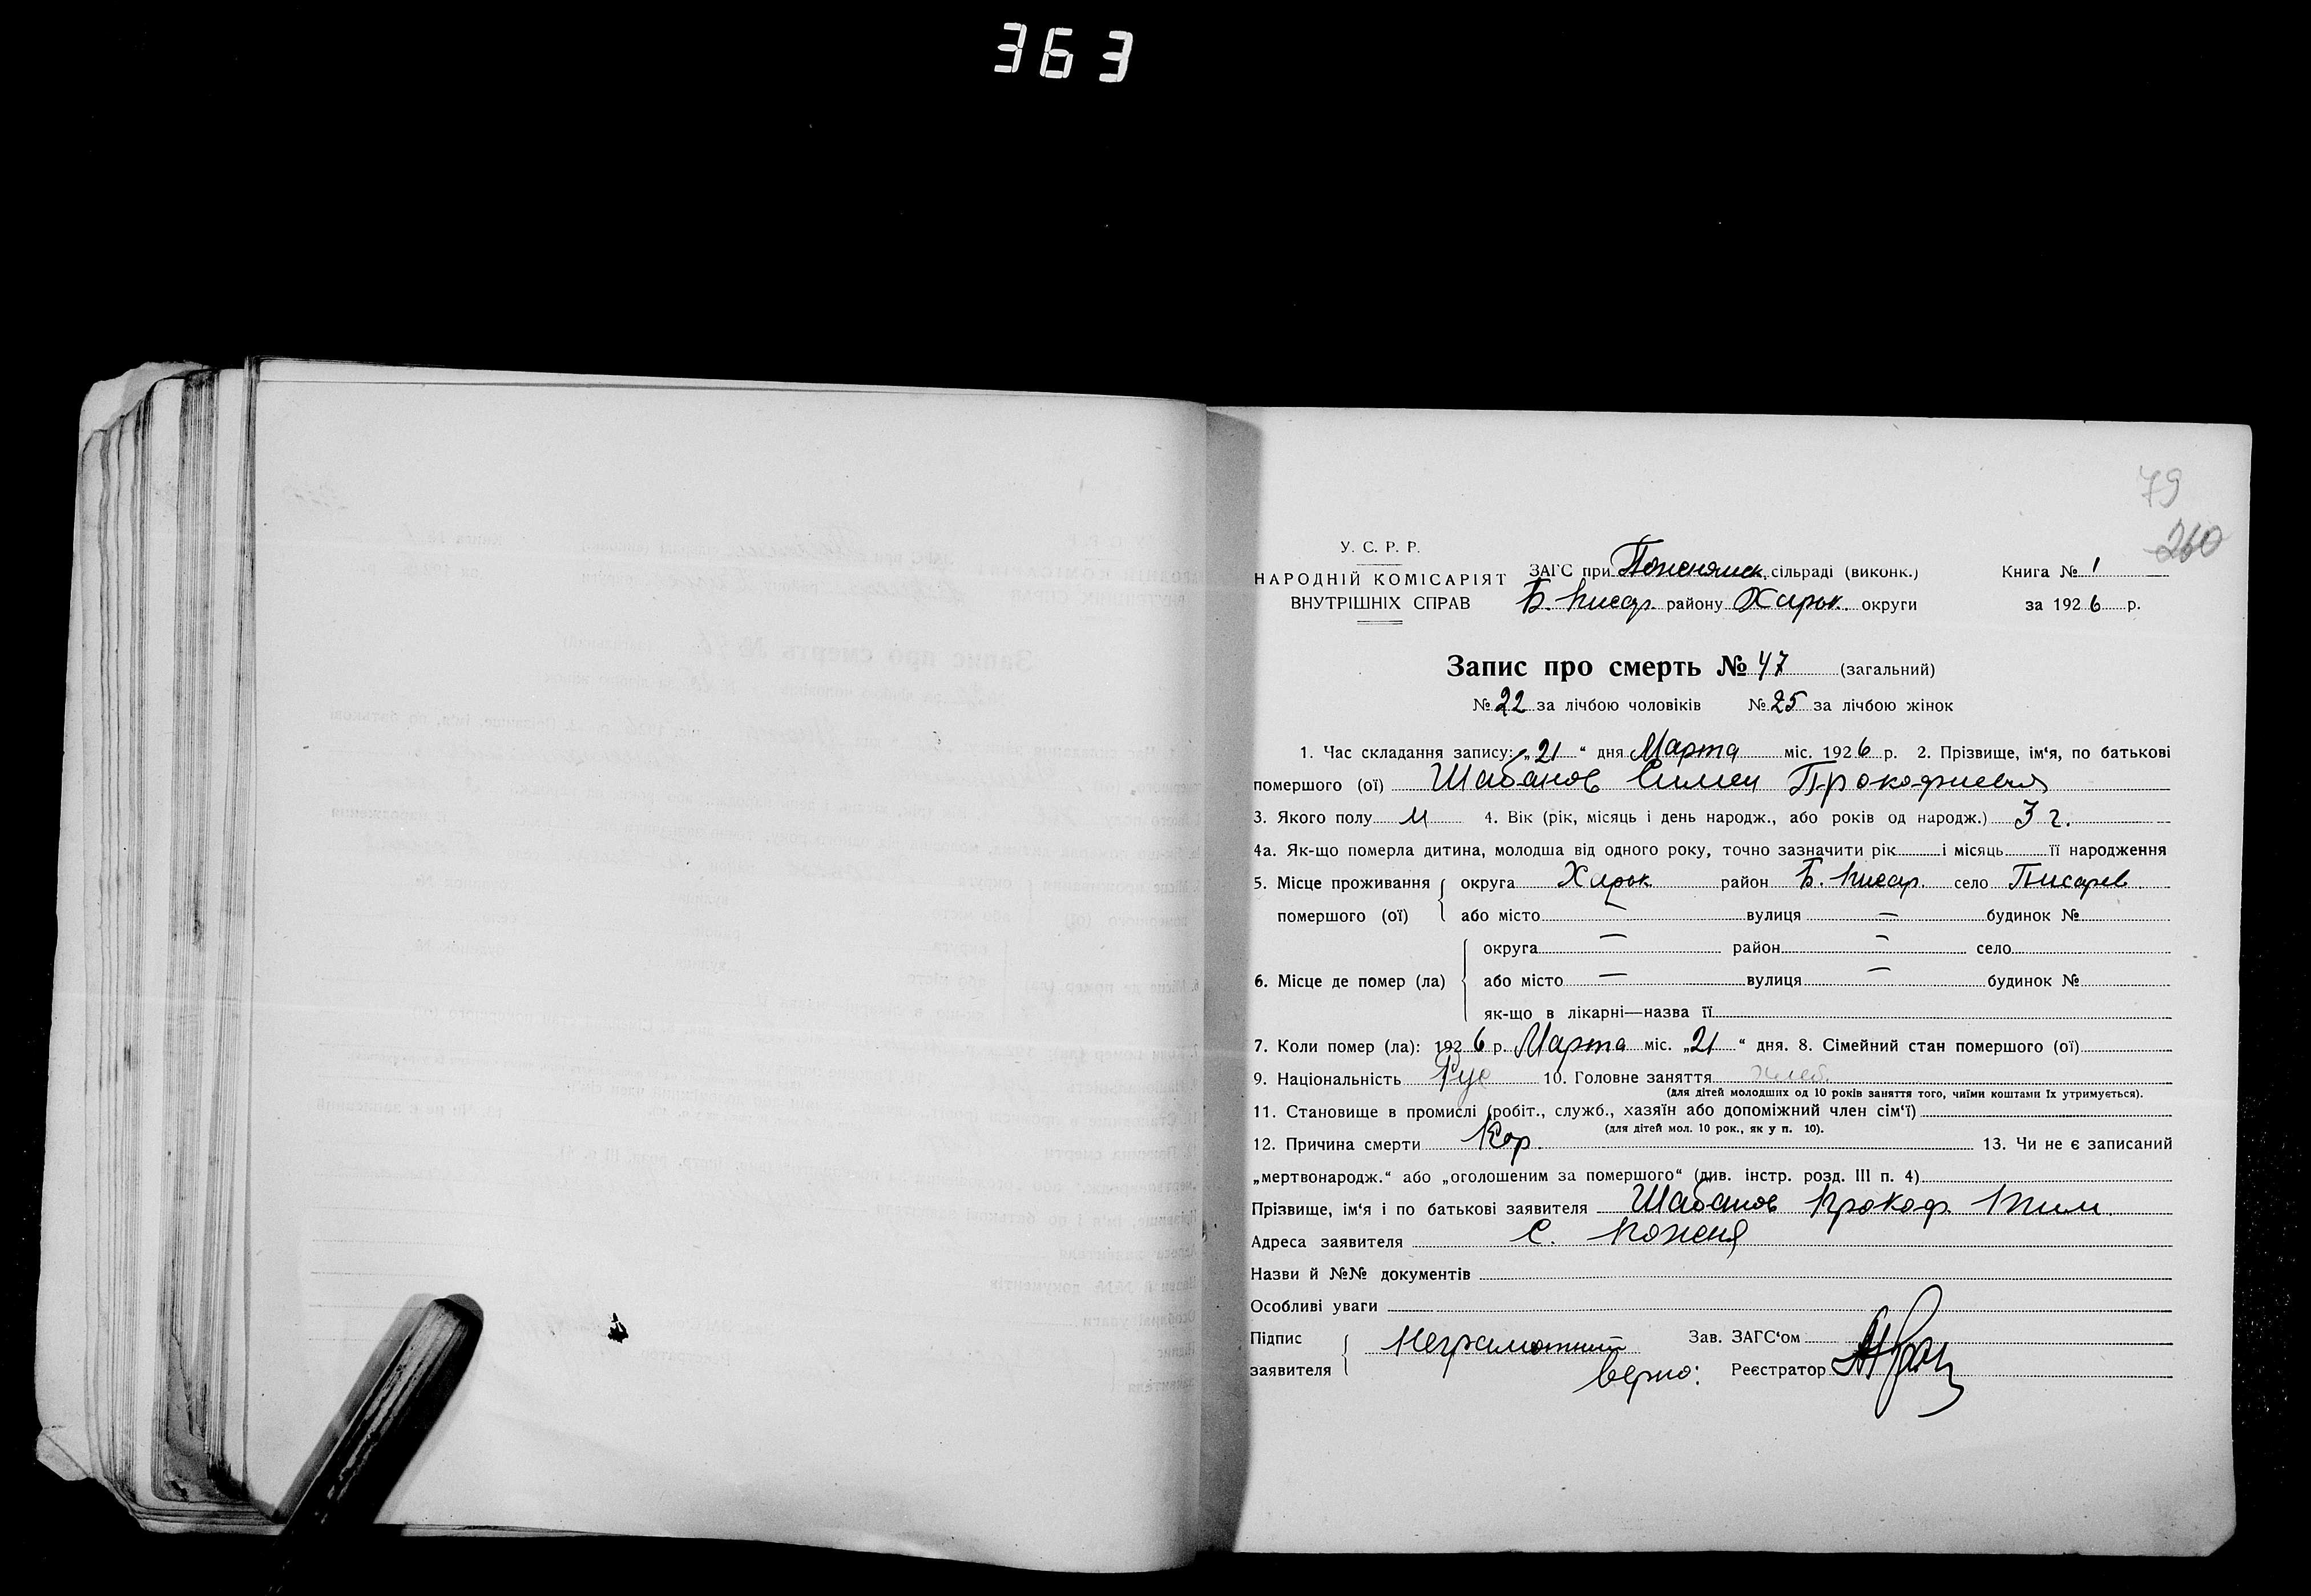 363
79
260
У. С. Р. Р.
НАРОДНІЙ КОМІСАРІЯТ
ВНУТРІШНІХ СПРАВ
ЗАГС при Поженямск. сільраді (виконк.)
Б. Писар. району Харьк. округи
Книга № 1
за 1926 р.
Запис про смерть № 47 (загальний)
№ 22 за лічбою чоловіків № 25 за лічбою жінок
1. Час складання запису: „21“ дня Марта міс. 1926 р. 2. Прізвище, ім‘я, по батькові
помершого (ої) Шабанов Симен Прокофиевич
3. Якого полу М 4. Вік (рік, місяць і день народж., або років од народж.) 3 г.
4а. Як-що померла дитина, молодша від одного року, точно зазначити рік і місяць її народження
5. Місце проживання помершого (ої) округа Харьк район Б. Писар. село Писарев.
або місто — вулиця — будинок №
6. Місце де помер (ла) округа — район — село
або місто — вулиця — будинок №
як-що в лікарні—назва її
7. Коли помер (ла): 1926 р. Марта міс. „21“ дня. 8. Сімейний стан помершого (ої)
9. Національність Рус 10. Головне заняття Хлеб.
(для дітей молодших од 10 років заняття того, чиїми коштами їх утримується).
11. Становище в промислі (робіт., служб., хазяїн або допоміжний член сім‘ї)
(для дітей мол. 10 рок., як у п. 10).
12. Причина смерти Кор. 13. Чи не є записаний
„мертвонародж.“ або „оголошеним за помершого“ (див. інстр. розд. III п. 4)
Прізвище, ім‘я і по батькові заявителя Шабанов Прокоф. Тим.
Адреса заявителя С. Поженя
Назви й №№ документів
Особливі уваги
Підпис заявителя Неграмотний
Зав. ЗАГС‘ом
верно: Реєстратор